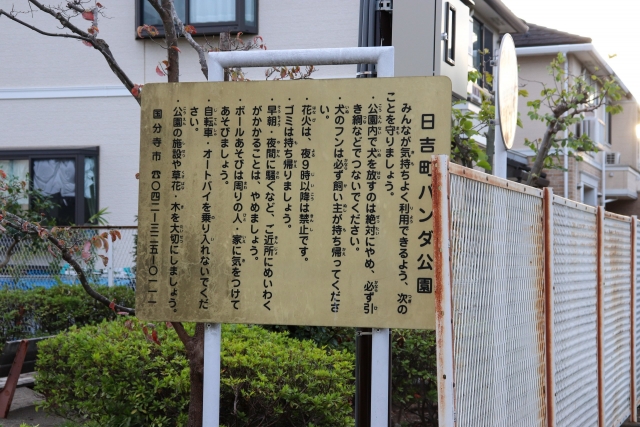 日吉町パンダ公園
みんなが気持ちよく利用できるよう、次の
ことを守りましょう。
・公園内で犬を放すのは絶対にやめ、必ず引
き綱などでつないでください。
・犬のフンは必ず飼い主が持ち帰ってくださ
い。
・花火は、夜9時以降は禁止です。
・ゴミは持ち帰りましょう。
・早朝・夜間に騒ぐなど、ご近所にめいわく
がかかることは、やめましょう。
・ボールあそびは周りの人・家に気をつけて
あそびましょう。
・自転車・オートバイを乗り入れないでくだ
さい。
・公園の施設や草花、木を大切にしましょう。
国分寺市 ☎〇四二ー三二五ー〇一一一